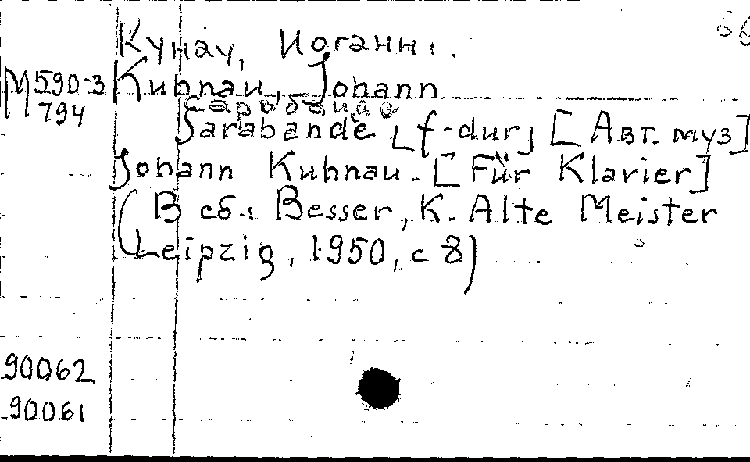 Кунау, Иоганн.
М590-3 Kuhnau, Johann
794 Сарабанда
Sarabande [f-dur] [Авт. муз]
Johann Kuhnau. [Für Klavier]
(В сб.: Besser, K. Alte Meister
Leipzig, 1950, с 8)
90062
90061